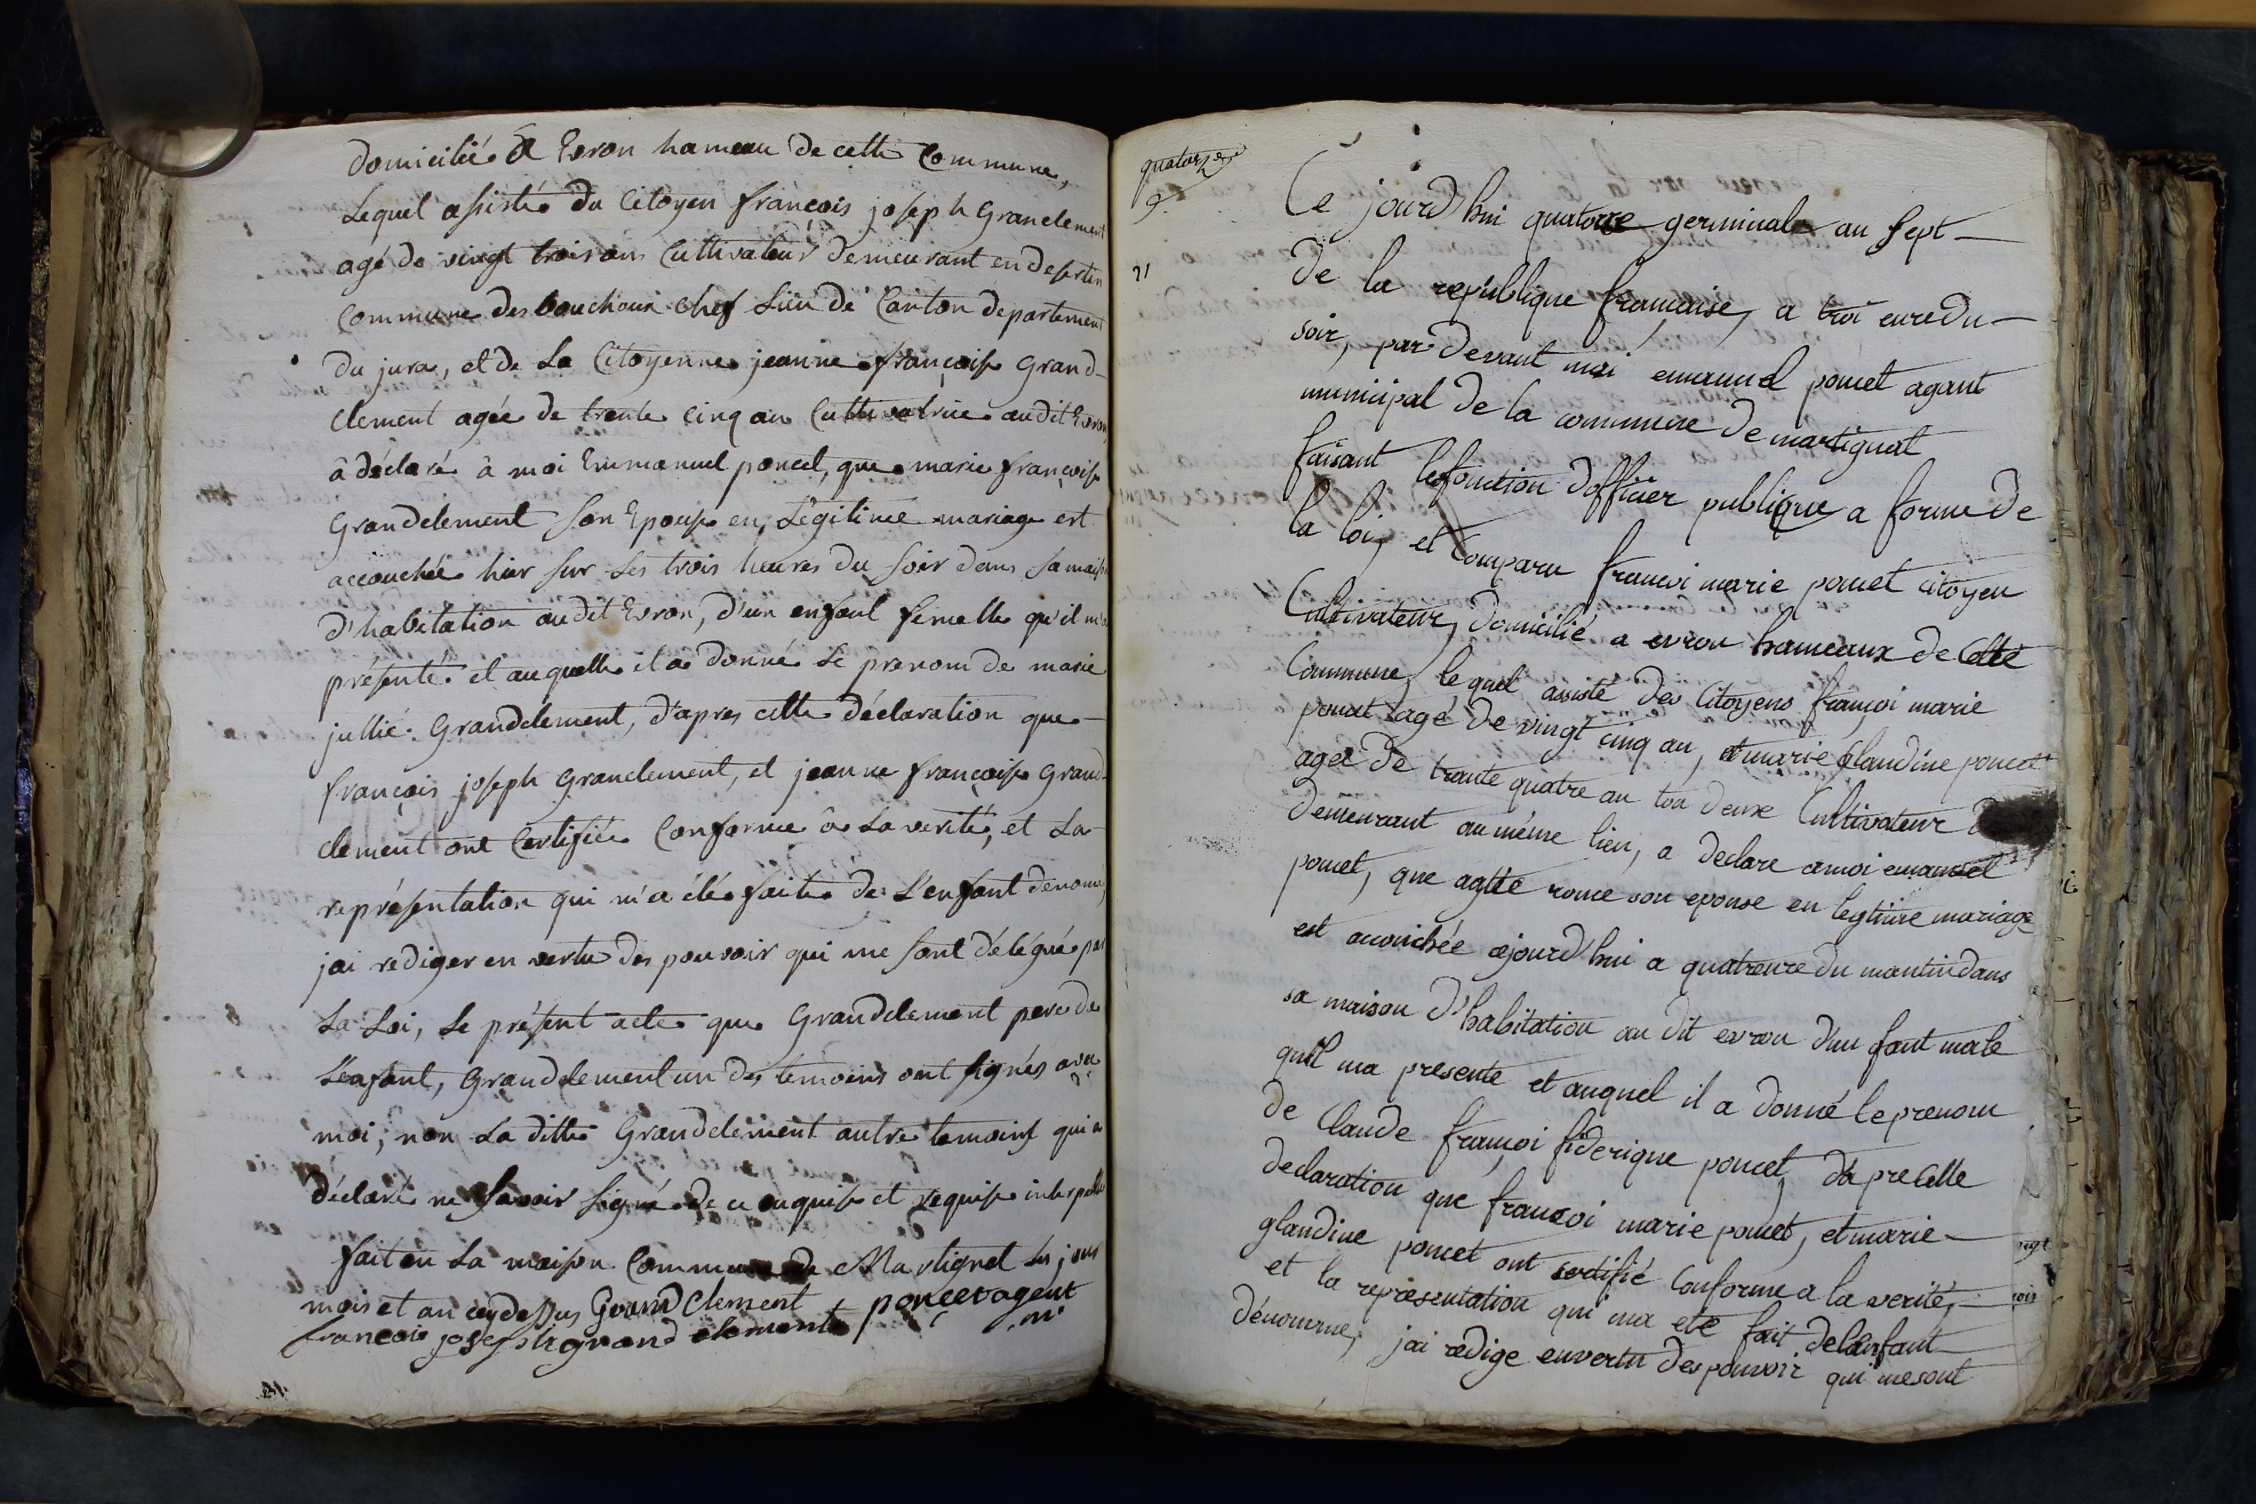 domicilié à Evron hameau de cette Commune,
Lequel assisté du Citoyen françois joseph Granclement
agé de vingt trois ans Cultivateur demeurant en desertin
Commune des bouchoux chef Lieu de Canton departement
du jura, et de La Citoyenne jeanne françoise Grand-
clement agée de trente cinq an Cultivatrice audit Evron
à déclaré à moi Emmanuel poncet, que marie françoise
Grandclement son Epouse en Légitime mariage est
accouchée hier sur Les trois heures du soir dans sa maison
d'habitation audit Evron, d'un enfant femelle qu'il m'a
présenté. et auquelle il a donné Le prenom de marie
jullie. Grandclement, d'apres cette déclaration que
françois joseph Granclement, et jeanne françoise Grand-
clement ont Certifiée Conforme à La verité, et La
représentation qui m'a été faite de L'enfant denomé
jai rediger en vertu des pouvoir qui me sont délégué par
La Loi, Le présent acte que Grandclement pere de
L'enfant, Grandclement un des temoins ont signés avec
moi, non La ditte Grandclement autre temoins qui a
déclaré ne savoir signé de ce enquise et requise interpellé
fait en La maison Commune de Martignat Les jour
mois et an cy dessus Grand Clement
françois joseph grand clement poncet agent
m
quatorze
9.
21
Ce jourd'hui quatorze germinal an sept
de la republique française, a troi eure du
soir, par devant moi emanuel poncet agant
municipal de la commune de martignat
faisant lesfonction d'officier publique a forme de
la loi, et comparu françoi marie poncet citoyen
Cultivateur, domicilié a evron hameaux de Cette
Commune, lequel assisté des Citoyens françoi marie
poncet agé de vingt cinq an, et marie glaudine poncet
agée de trante quatre an tou deux Cultivateur
demeurant au même lieu, a declare amoi emanuel
poncet, que agtte rome son epouse en legtime mariage
est acouchée ajourd'hui a quatreure du mantin dans
sa maison d'habitation au dit evron d'un fant male
quil ma presente et auquel il a donné le prenom
de Claude françoi fiderique poncet, d'a pre Cette
declaration que françoi marie poncet, et marie
glaudine poncet ont certifié Conforme a la verité,
et la representation qui ma eté fait delanfant
dénomme, jai redige envertu des pouvoir qui me sont